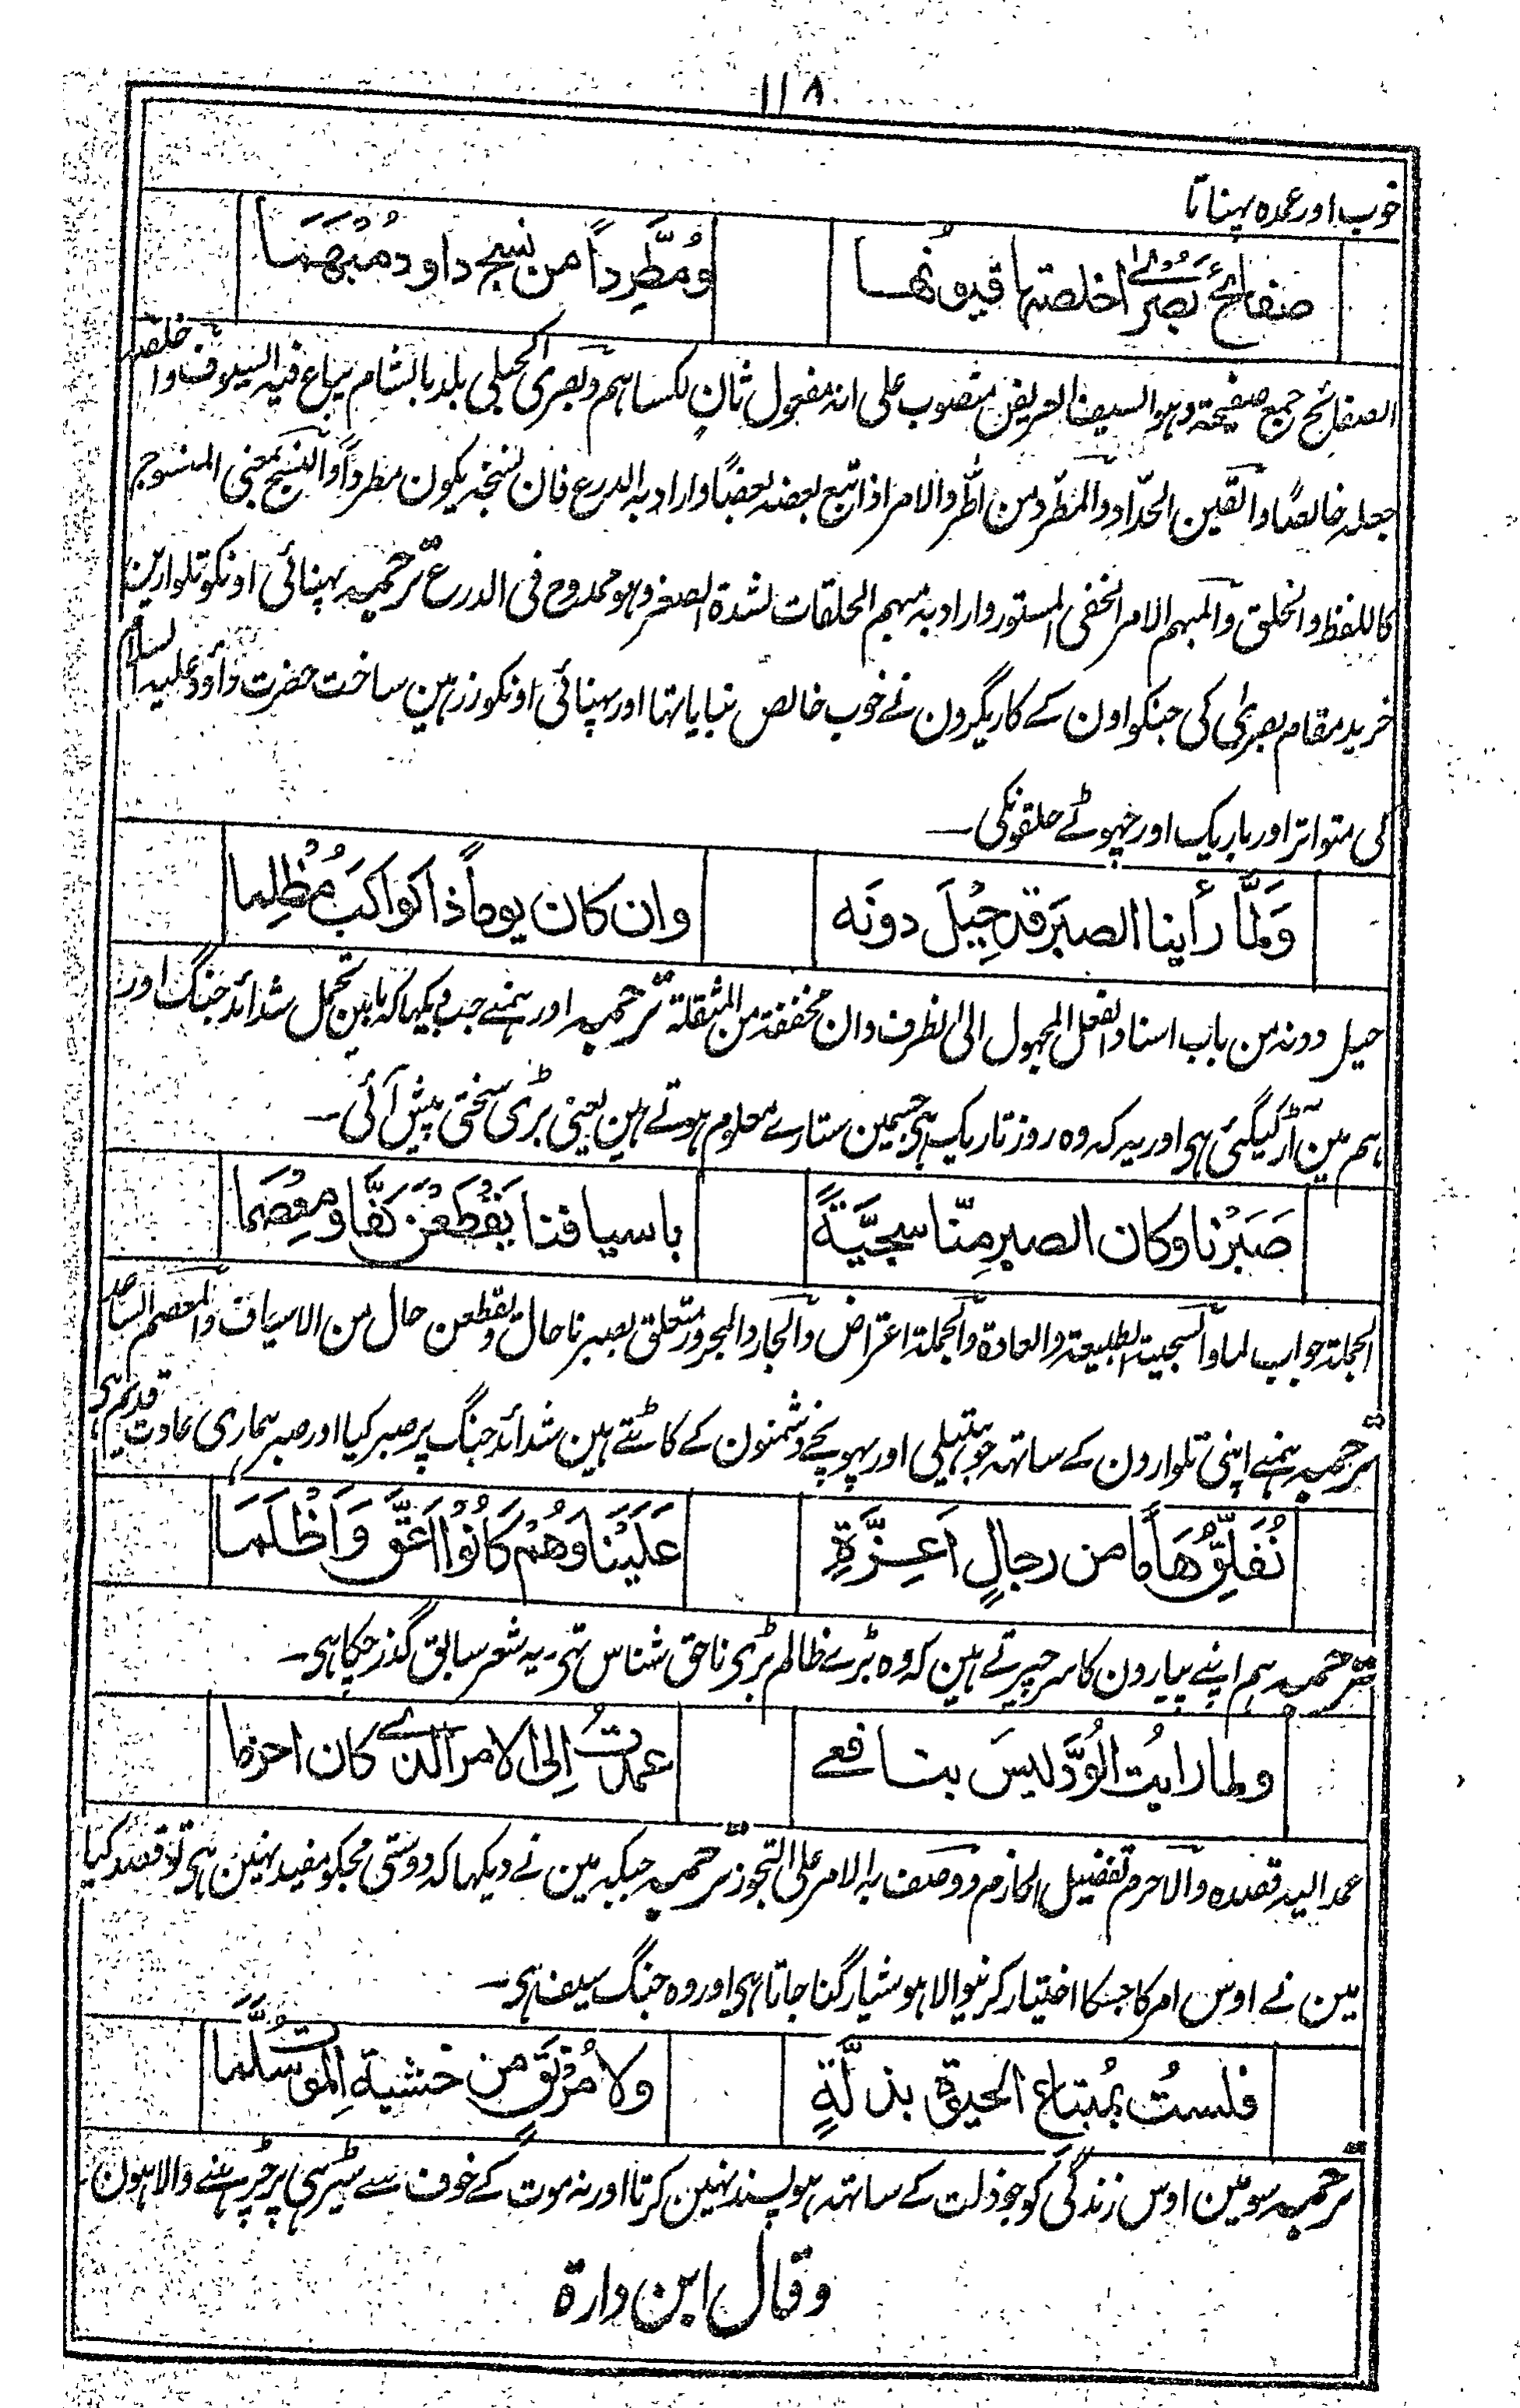 ۱۱۸
خوب اور عمدہ پہناتا
صفائحُ بُصْرٰے اخلصتہا قیونُہا
ومُطَّرِداً من نسج داود مُبْهَمَا
الصفائح جمع صفیحۃ وہو السیف العریض منصوب علی انہ مفعول ثانٍ لکساہم وبصری کحبلی بلد بالشام یباع فیہ السیوف واخلصتہ
جعلہ خالصًا والقین الحدّاد والمطّرد من اطّرد الامر اذا تبع بعضہ بعضًا واراد بہ الدرع فان نسجہ یکون مطرداً والنسج بمعنی المنسوج
کاللفظ والخلق والمبہم الامر الخفی المستور واراد بہ مبہم الحلقات لشدۃ الصغر وہو ممدوح فی الدرع ترجمہ پہنائی اونکو تلوارین
خرید مقام بصریٰ کی جنکو اون کے کاریگرون نے خوب خالص بنایا تہا اور پہنائی اونکو زرہین ساخت حضرت داؤد علیہ السلام
کی متواتر اور باریک اور چہوٹے حلقونکی ۔
وَلمَّا رأینا الصبَر قد حِیْلَ دونَہ
وان کان یوماً ذا کواکبَ مُظْلِما
حیل دونہ من باب اسناد الفعل المجہول الی الظرف وان مخففۃ من المثقلۃ ترجمہ اور ہمنے جب دیکہا کہ مابین تحمل شدائد جنگ اور
ہم مین آڑ کیگئی ہی اور یہ کہ وہ روز تاریک ہی جسمین ستارے معلوم ہوتے ہین یعنی بڑی سختی پیش آئی ۔
صَبَرْنا وکان الصبر مِنّا سجیَّۃً
باسیافنا یَقْطَعْنَ کَفًّا ومِعْصَما
الجملۃ جواب لما والسجیۃ الطبیعۃ والعادۃ والجملۃ اعتراض والجار والمجرور متعلق بصبرنا حال و یقطعن حال من الاسیاف والمعصم الساعد
ترجمہ ہمنے اپنی تلوارون کے ساتھ جو ہتیلی اور پہونچے دشمنون کے کاٹتے ہین شدائد جنگ پر صبر کیا اور صبر ہماری عادت قدیم ہی
نُفَلِّقُ هَامًا من رجالٍ اَعِزَّةٍ
عَلَیْنَا وَهُمْ کَانُوْا اَعَقَّ وَاَظْلَمَا
ترجمہ ہم اپنے پیارون کا سر چیرتے ہین کہ وہ بڑے ظالم بڑی ناحق شناس تہی ۔ یہ شعر سابق گذر چکا ہی ۔
ولما رایتُ الوُدَّ لیسَ بنافعے
عمدتُ اِلی الامر الذے کان احزما
عمد الیہ قصدہ والاحزم تفضیل الحازم ووصف بہ الامر علی التجوز ترجمہ جبکہ مین نے دیکہا کہ دوستی مجکو مفید نہین ہی تو قصد کیا
مین نے اوس امر کا جسکا اختیار کرنیوالا ہوشیار گنا جاتا ہی اور وہ جنگ سیف ہی ۔
فلستُ بمُبتاع الحیٰوۃ بذلَّةٍ
ولا مُرْتَقٍ من خشیة الموت سُلَّمَا
ترجمہ سو مین اوس زندگی کو جو ذلت کے ساتھ ہو پسند نہین کرتا اور نہ موت کے خوف سے سیڑہی پر چڑہنے والا ہون ۔
وقال ابن دارۃ